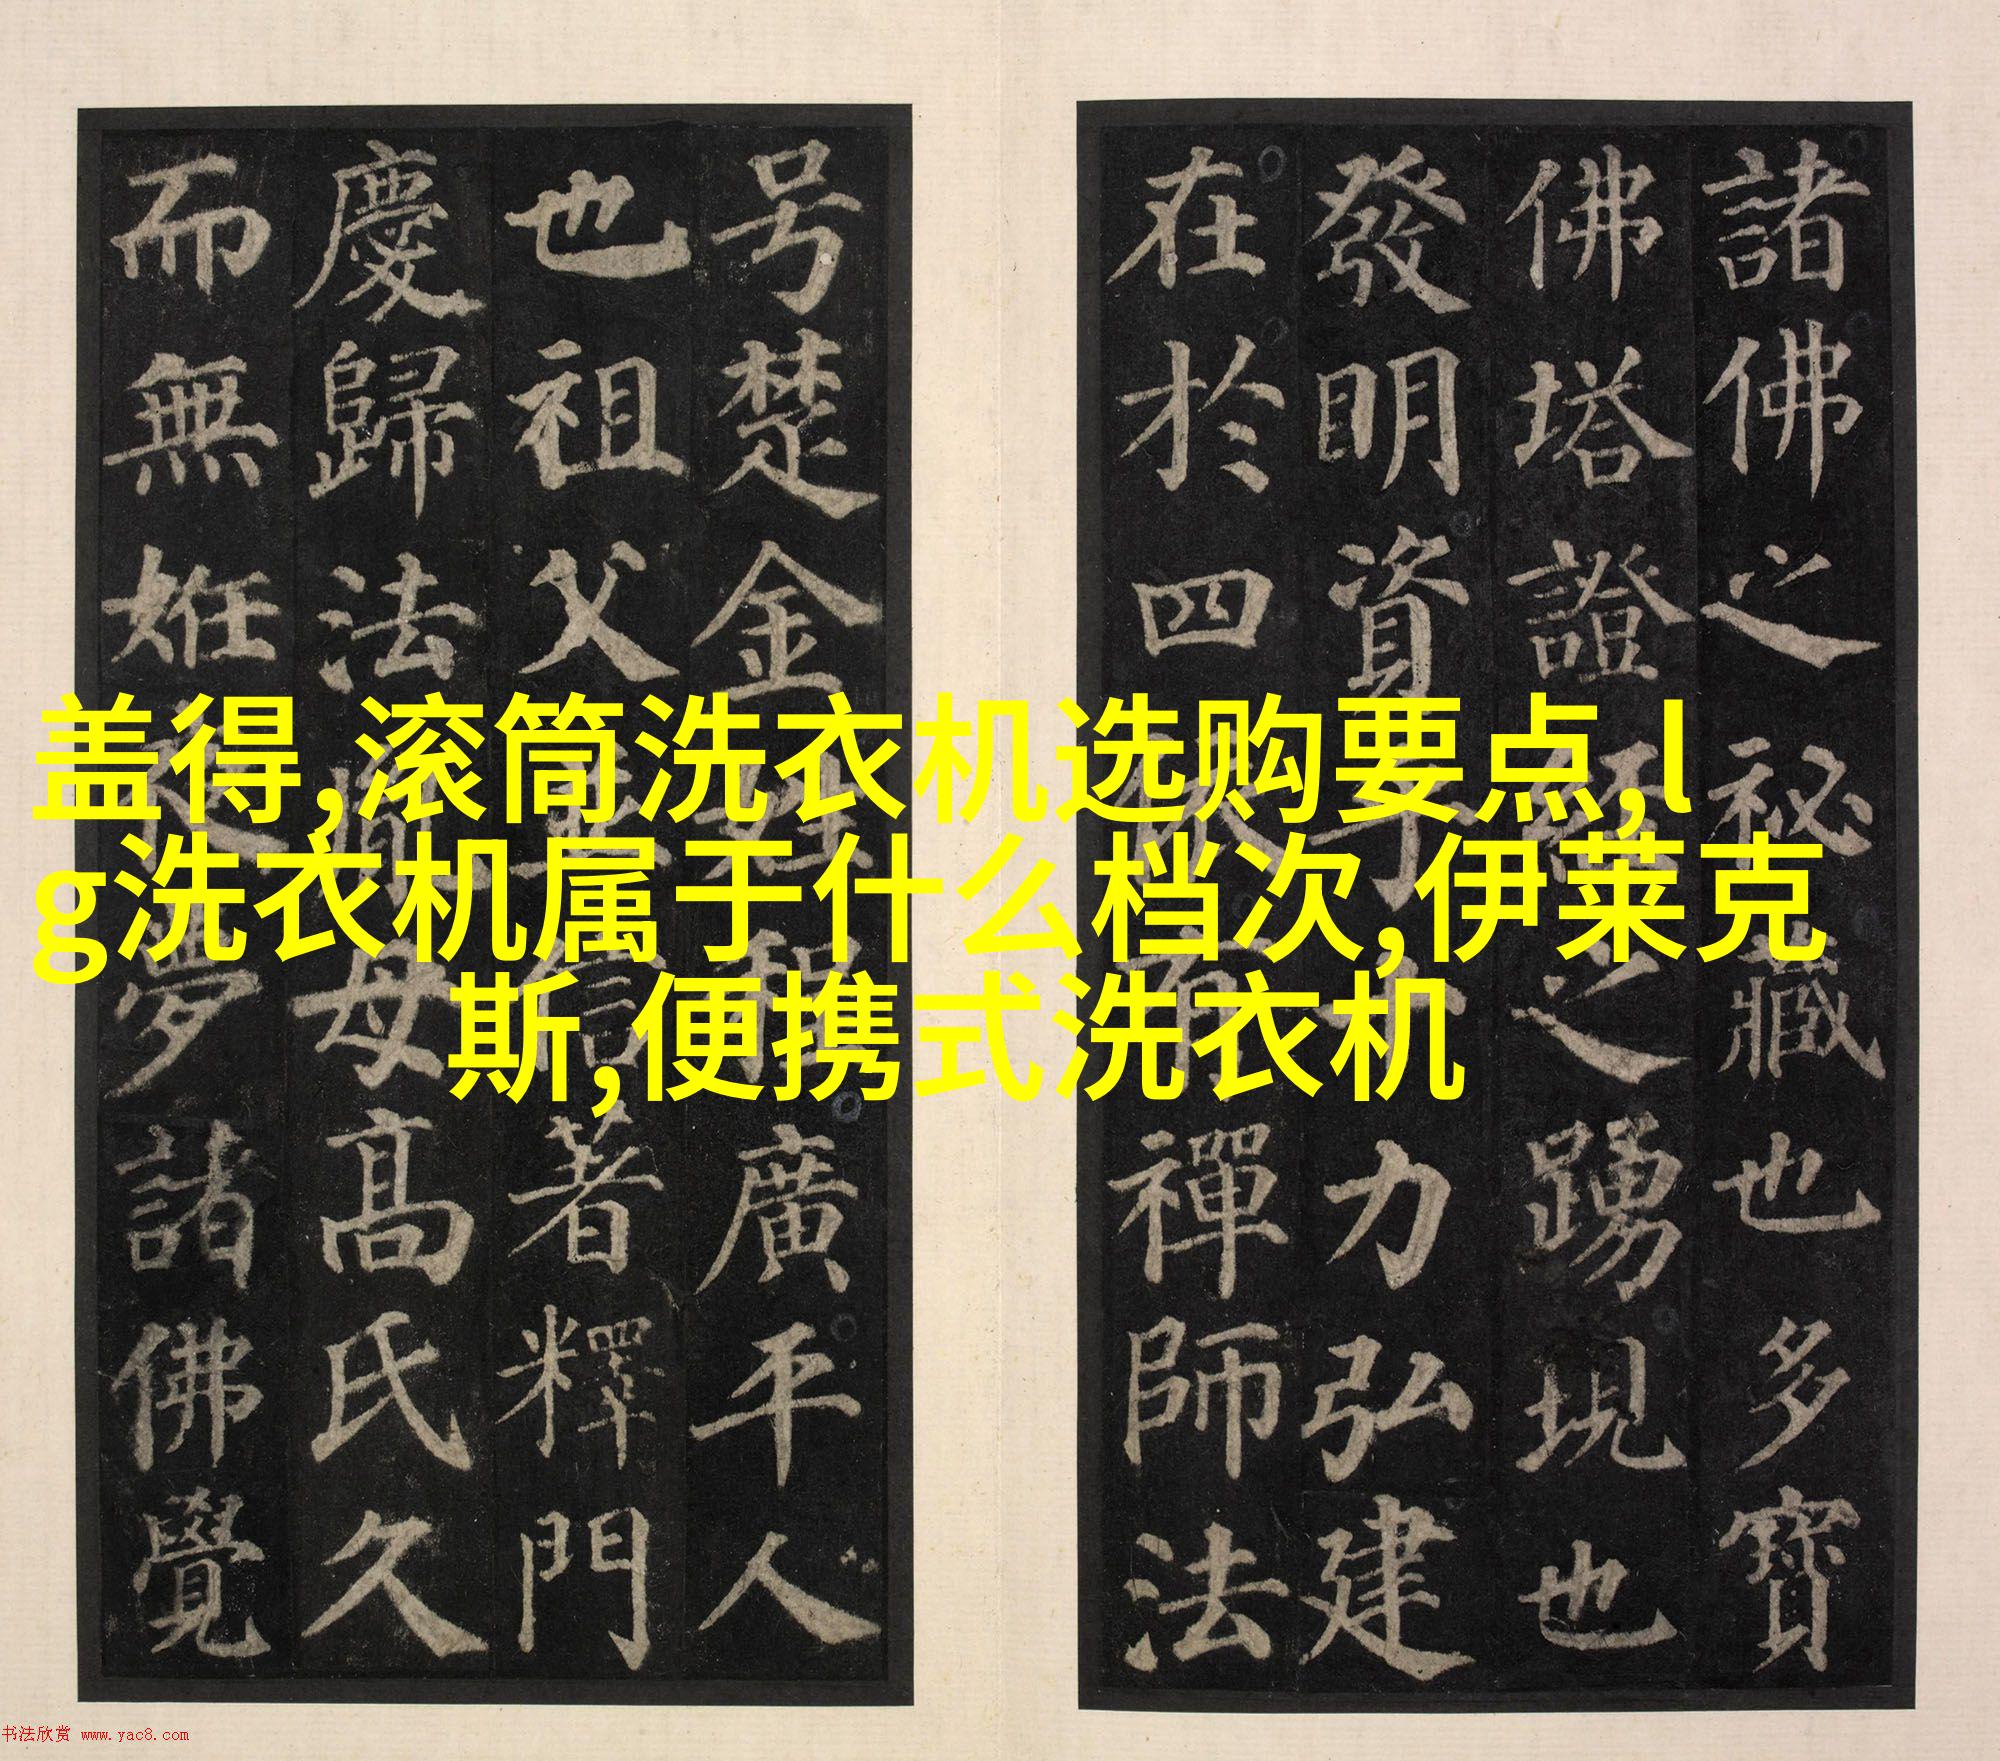 諸佛之祕藏也多寶
佛塔證經之踴現也
發明資乎十力弘建
在於四依有禪師法
号楚金姓程廣平人
也祖父並信著釋門
慶歸法胤母髙氏久
而無姙夜夢諸佛覺
盖得,滚筒洗衣机选购要点,l
g洗衣机属于什么档次,伊莱克
斯,便携式洗衣机
书法欣赏 www.yac8.com